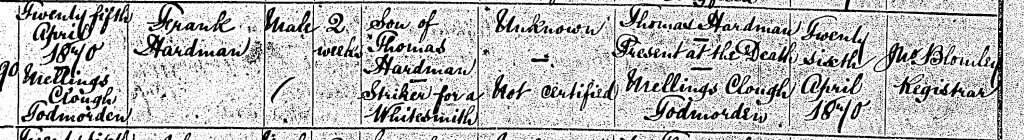 Twenty fifth
April
1870
Mellings
Clough
Todmorden
Frank
Hardman
Male
2
weeks
Son of
Thomas
Hardman
Striker for a
Whitesmith
Unknown
Not certified
Thomas Hardman
Present at the Death
Mellings Clough
Todmorden
Twenty
sixth
April
1870
Jno. Blomley
Registrar